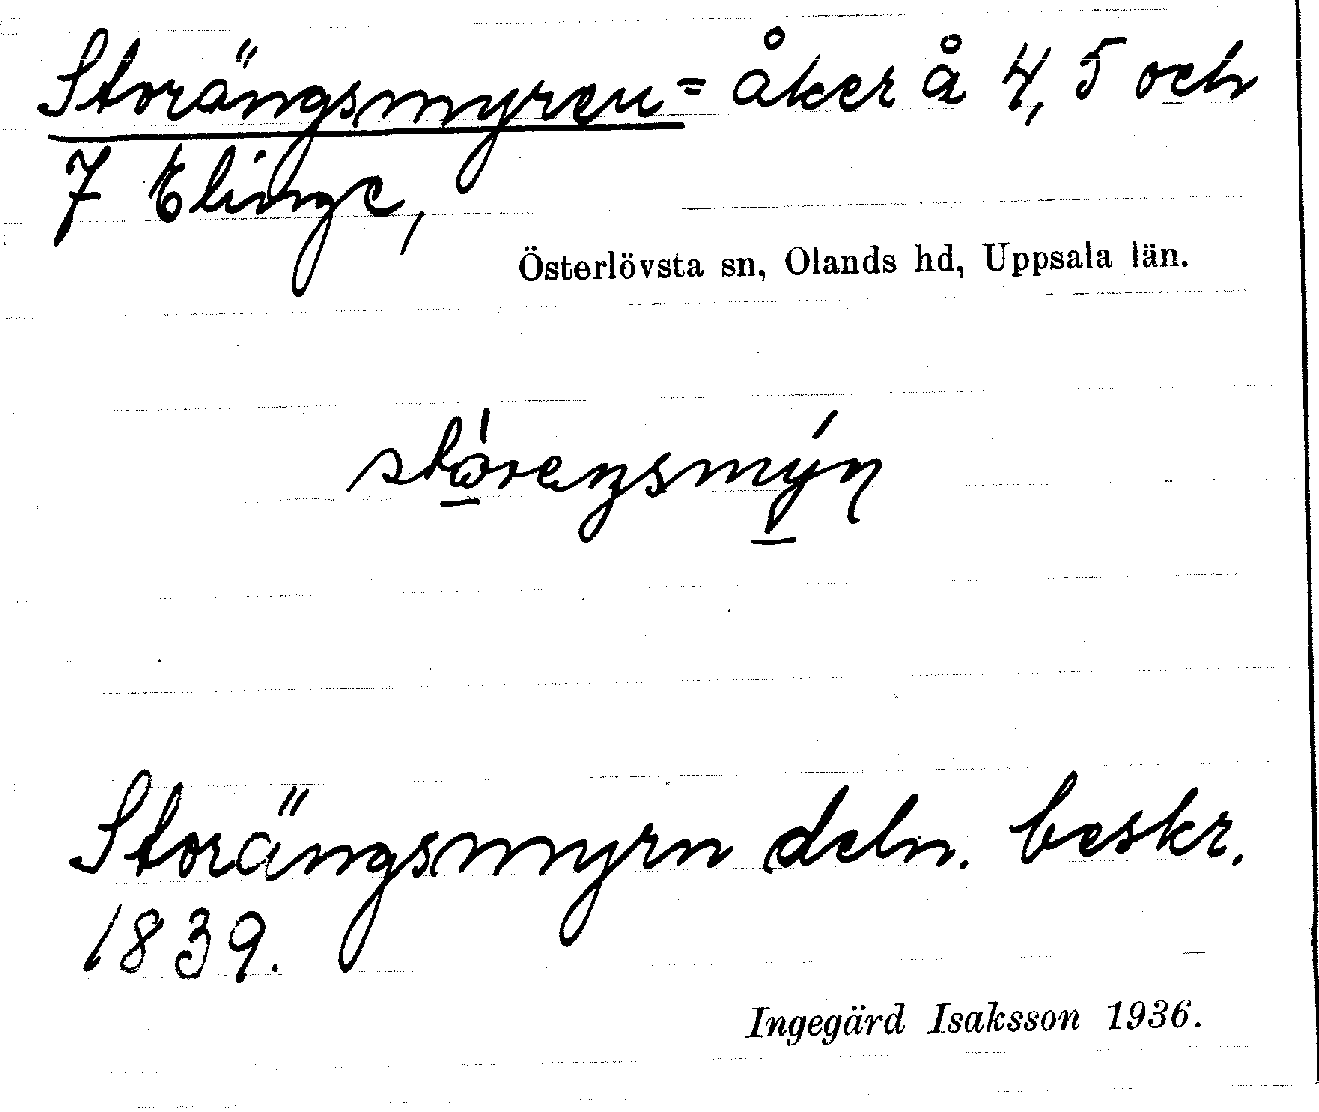 Storängsmyren = åker å 4, 5 och
7 Elinge,
Österlövsta sn, Olands hd, Uppsala län.
Storängsmyrn deln. beskr.
1839.
Ingegärd Isaksson 1936.